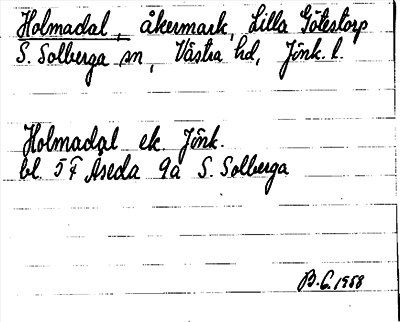 Holmadal, åkermark, Lilla Götestorp
S. Solberga sn, Västra hd, Jönk. l.
Holmadal ek Jönk.
bl. 5F Åseda 9a S. Solberga
B.G. 1958